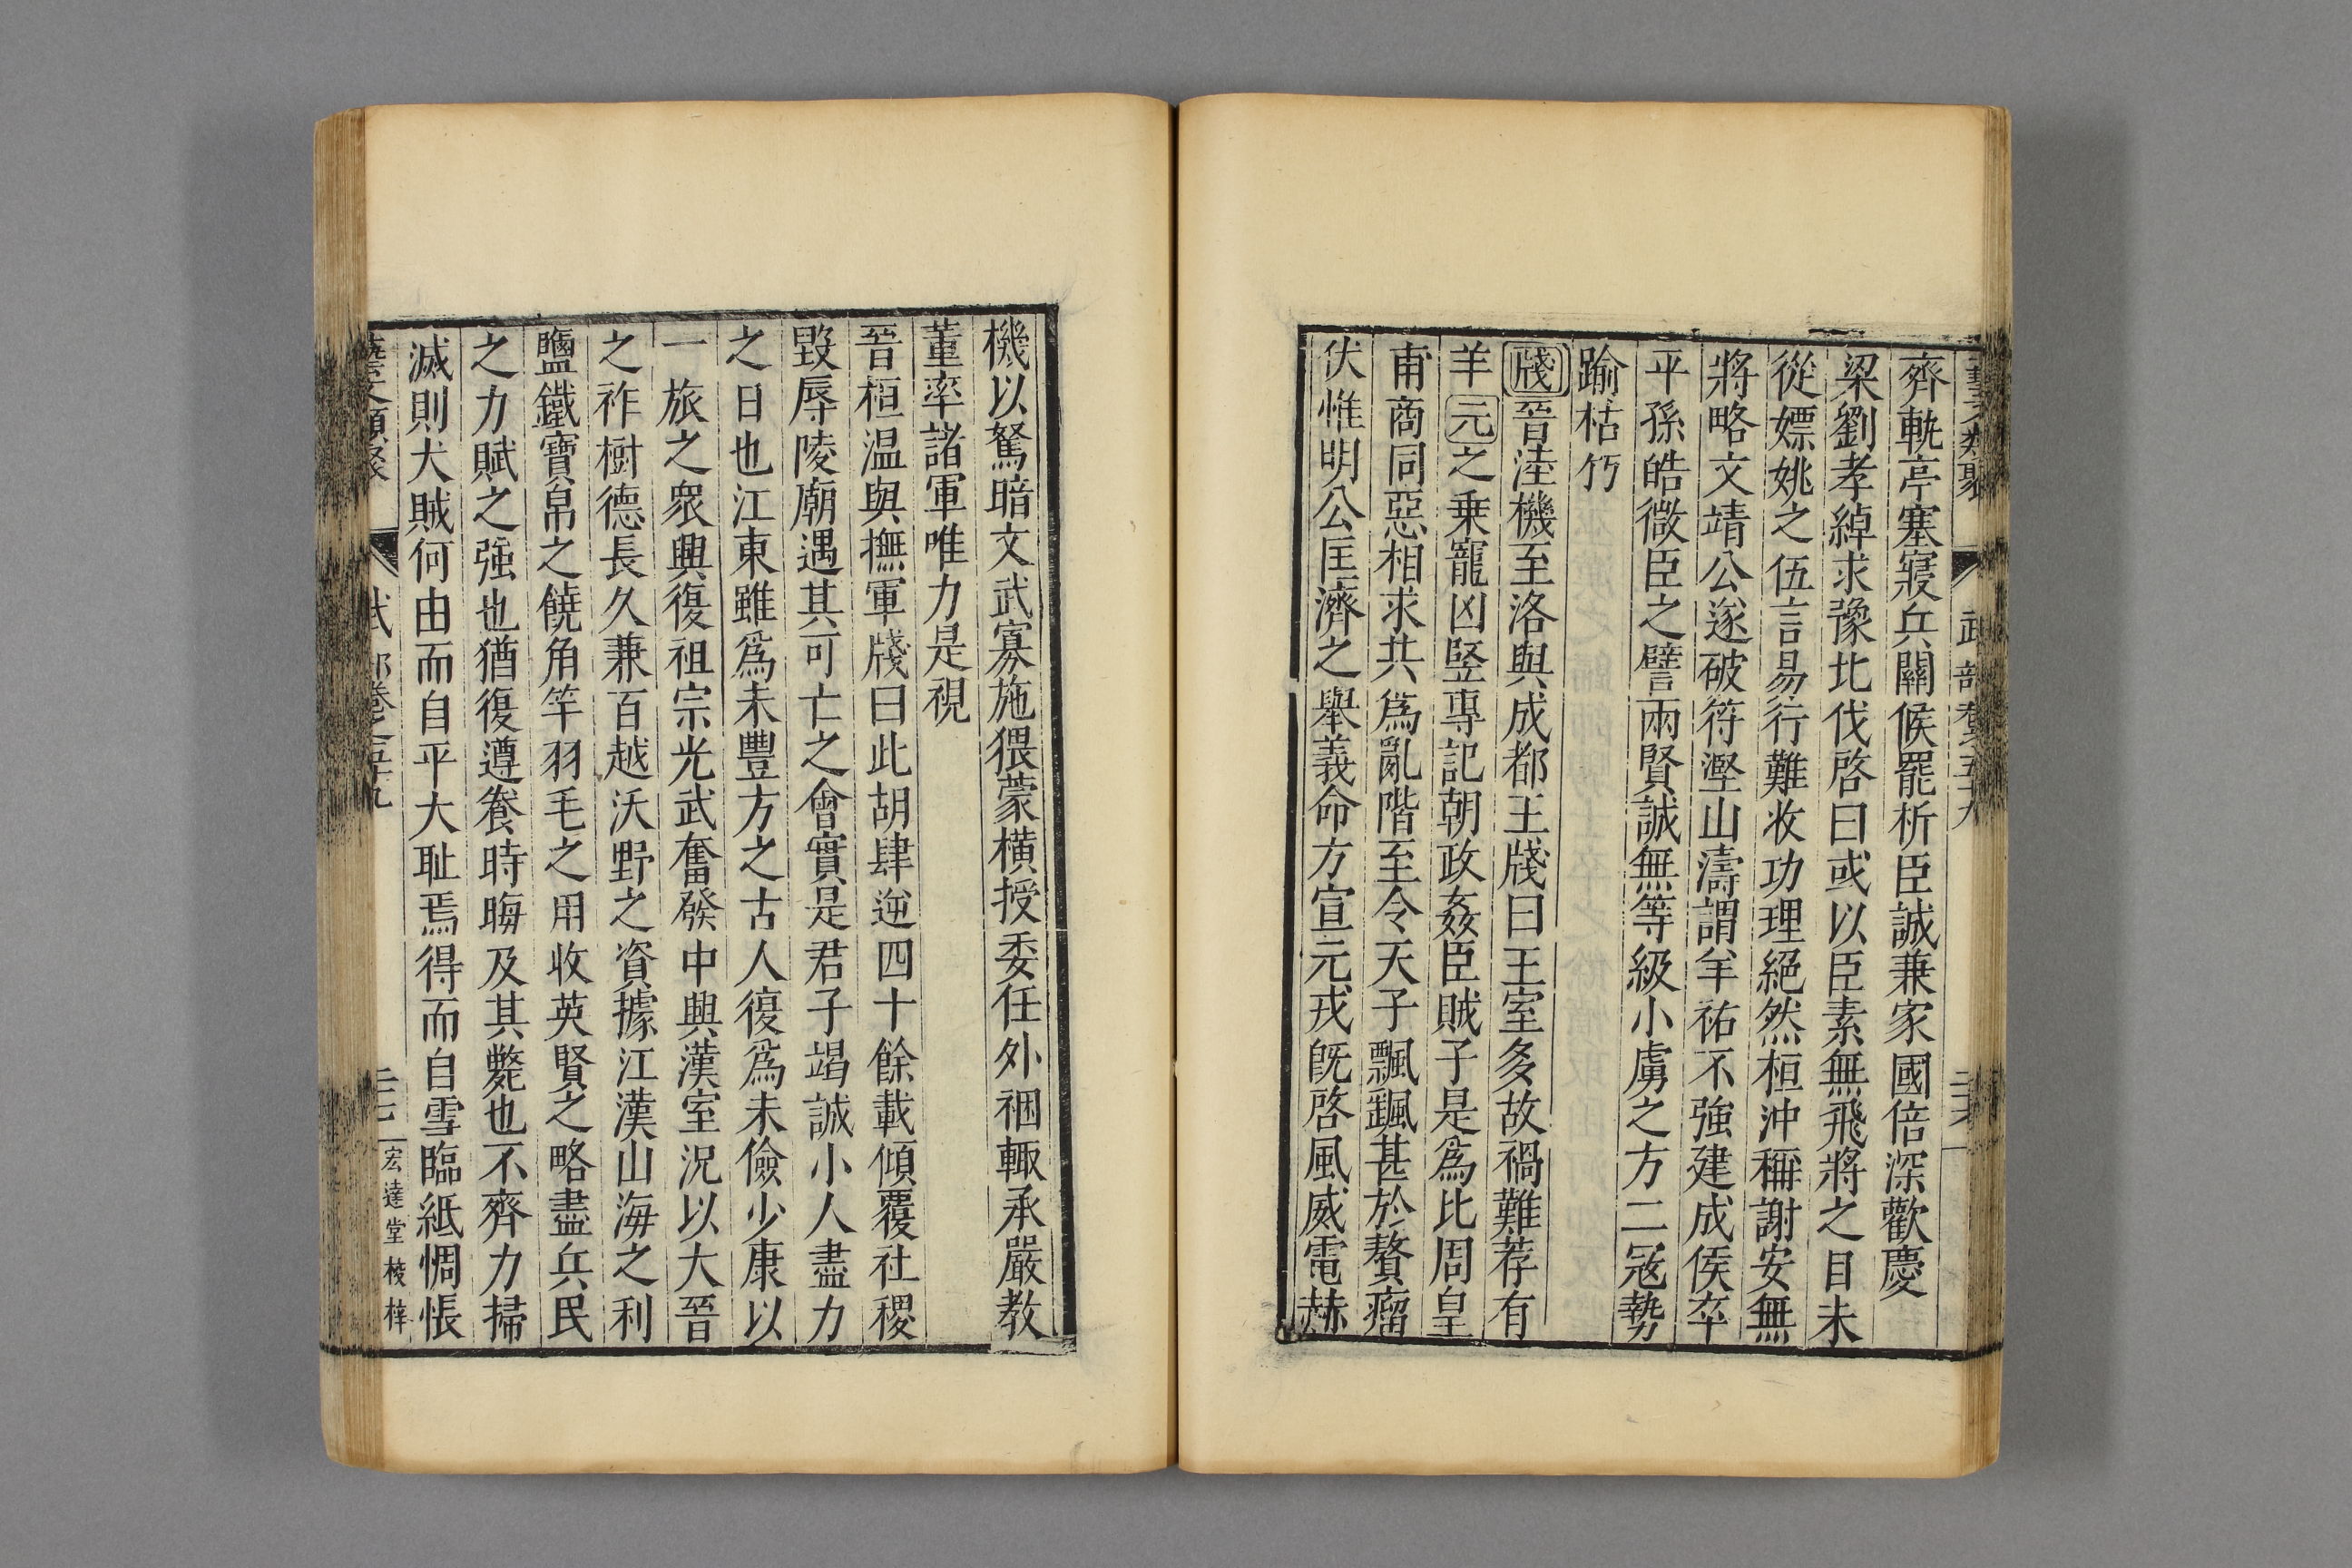 齊軌亭塞寢兵關候罷析臣誠兼家國倍深歡慶
梁劉孝綽求豫北伐啓曰或以臣素無飛將之目未
從嫖姚之伍言易行難收功理絕然桓沖稱謝安無
將略文靖公遂破符堅山濤謂羊祜不強建成侯卒
平孫皓微臣之譬兩賢誠無等級小虜之方二冦勢
踰枯竹
牋晉陸機至洛與成都王牋曰王室多故禍難荐有
羊元之乗寵凶竪專記朝政姦臣賊子是爲比周皇
甫商同惡相求共爲亂階至令天子飄颻甚於贅瘤
伏惟明公匡濟之舉義命方宣元戎旣啓風威電赫
機以駑暗文武寡施猥蒙橫授委任外梱輙承嚴教
董率諸軍唯力是視
晉桓温與撫軍牋曰此胡肆逆四十餘載傾覆社稷
毀辱陵廟遇其可亡之會實是君子竭誠小人盡力
之日也江東雖爲未豐方之古人復爲未儉少康以
一旅之衆興復祖宗光武奮發中興漢室況以大晉
之祚樹德長久兼百越沃野之資據江漢山海之利
鹽鐵寶帛之饒角竿羽毛之用收英賢之略盡兵民
之力賦之强也猶復遵養時晦及其斃也不齊力掃
滅則犬賊何由而自平大耻焉得而自雪臨紙惆悵
宏達堂校梓